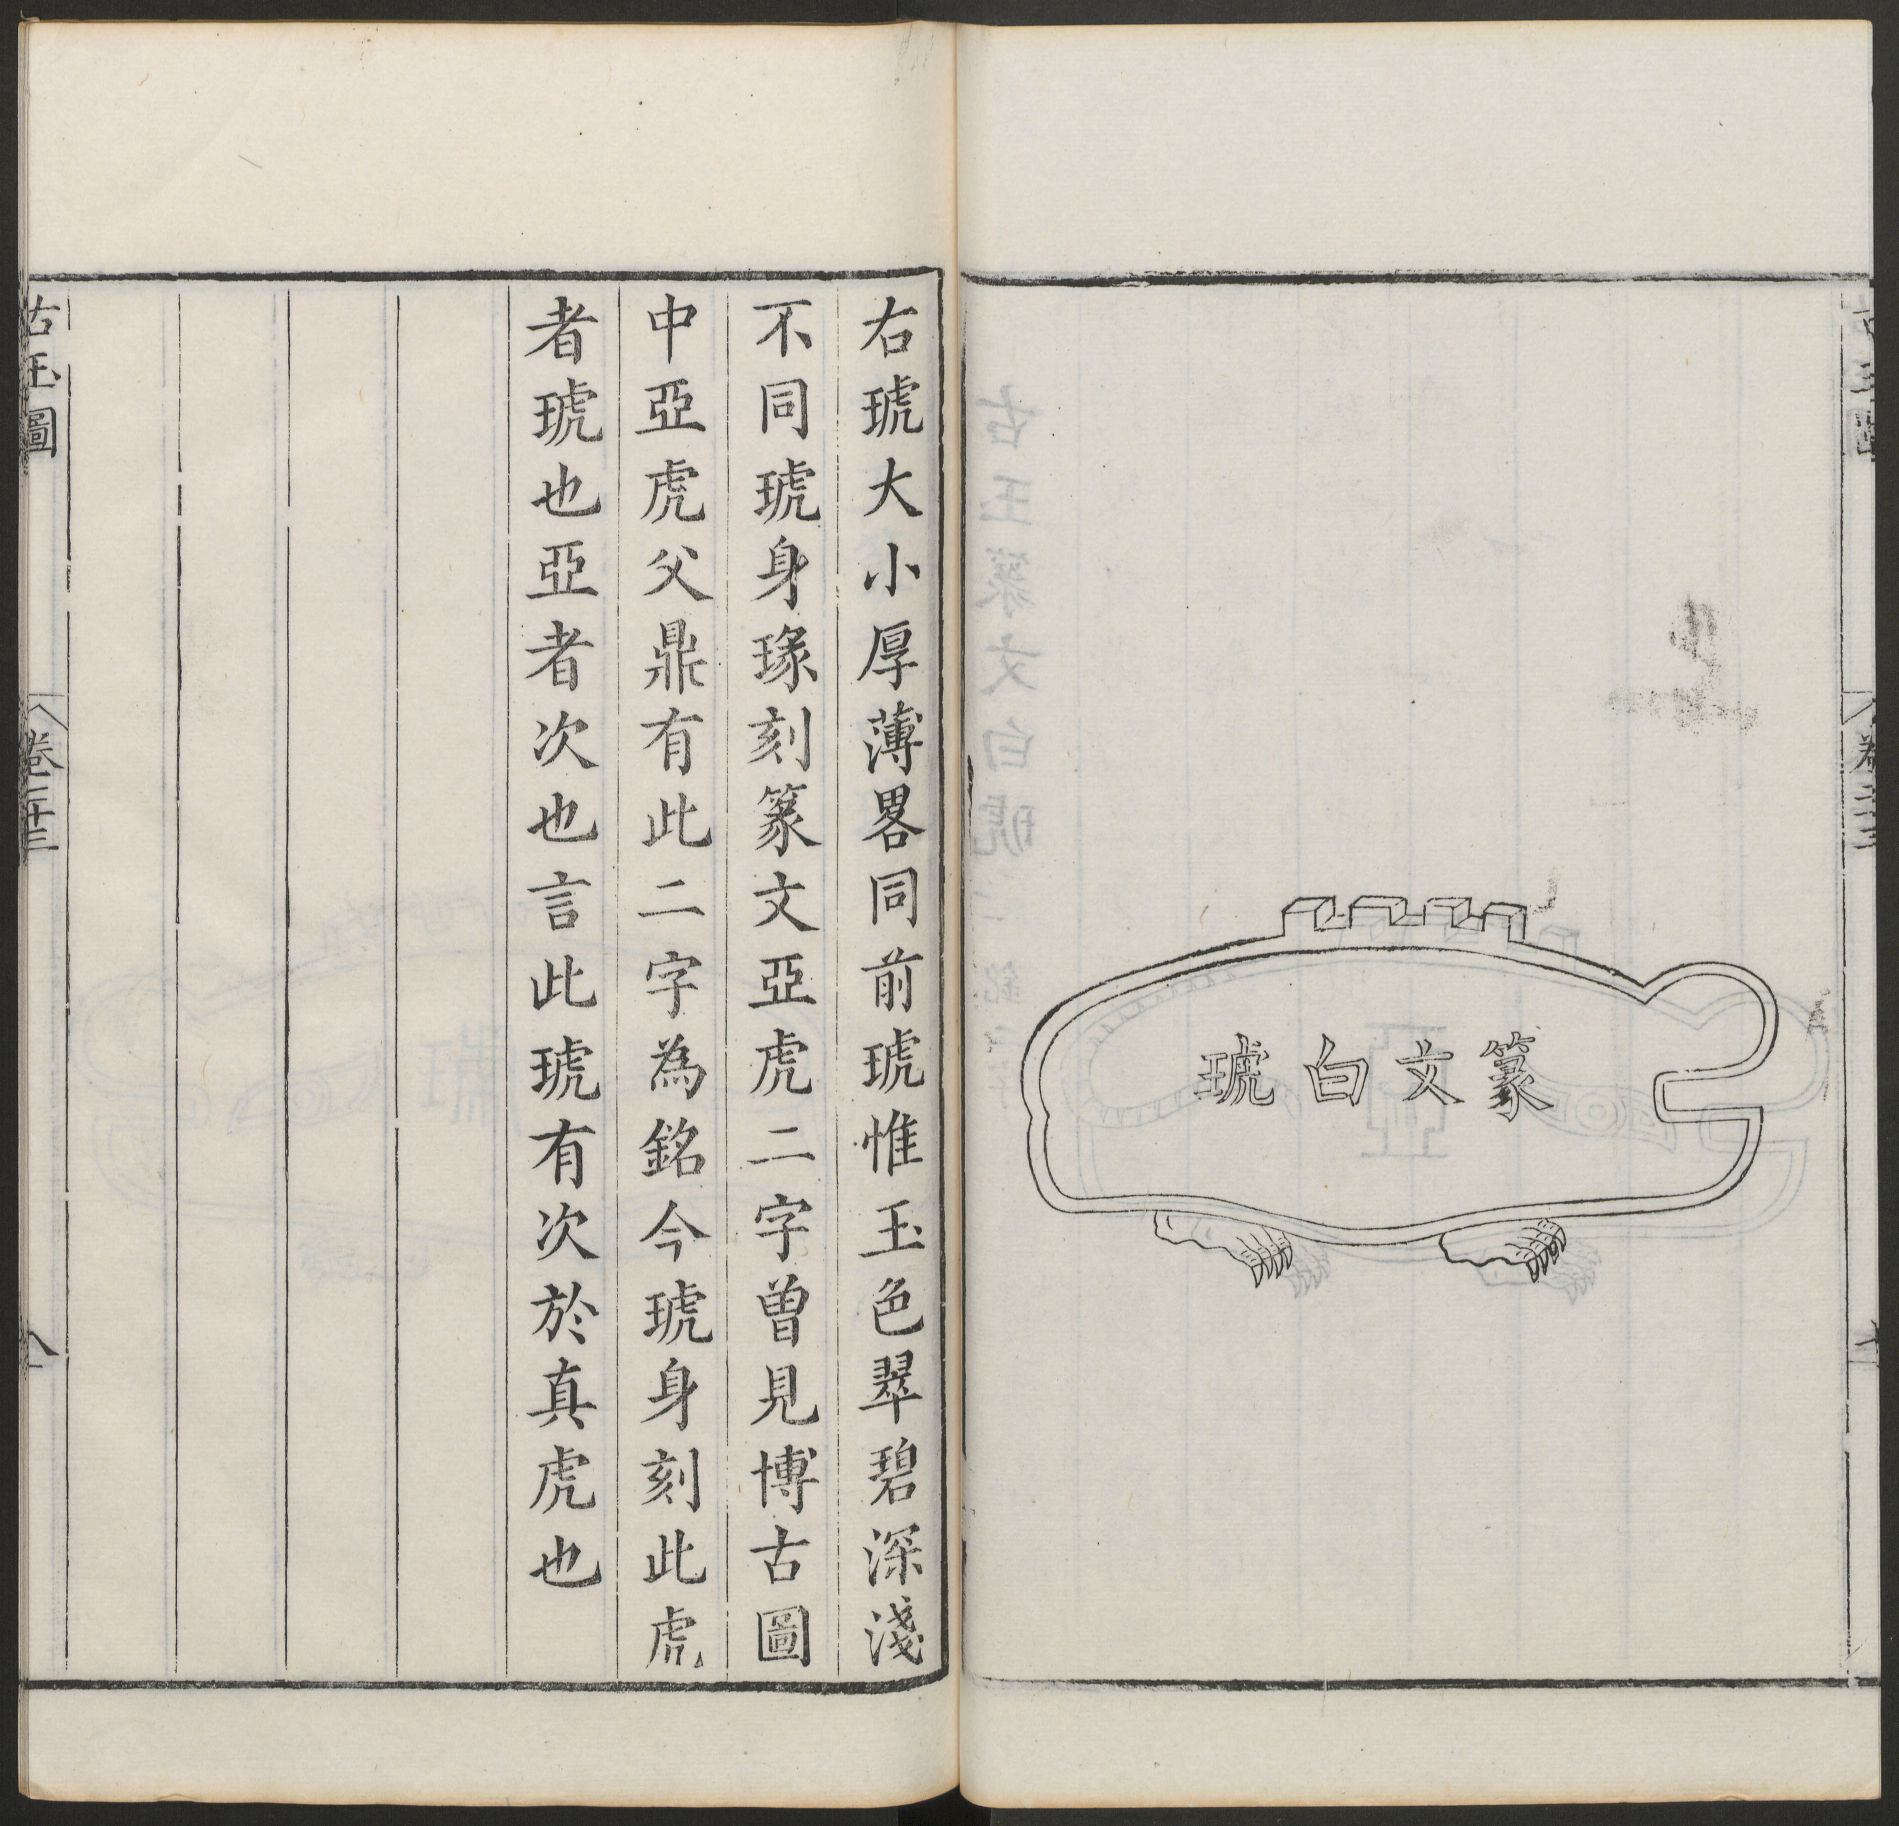 篆文白琥
右琥大小厚薄畧同前琥惟玉色翠碧深淺
不同琥身瑑刻篆文亞虎二字曾見博古圖
中亞虎父鼎有此二字為銘今琥身刻此虎
者琥也亞者次也言此琥有次於真虎也
古玉圖
卷二十三
八